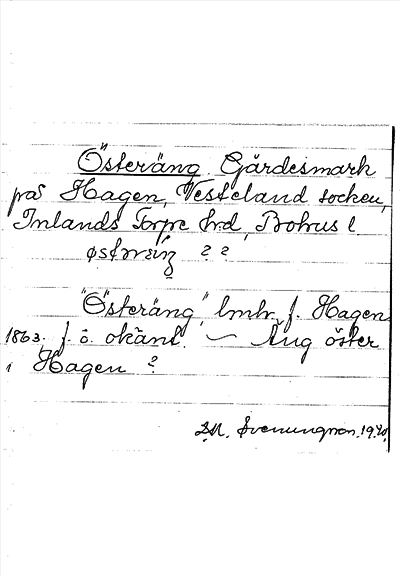 Österäng. Gärdesmark
på Hagen, Vesteland socken,
Inlands Torpe hrd, Bohus l
østræŋ ? ?
"Österäng" lmhr. f. Hagen
1863. f. ö. okänt. – Äng öster
i Hagen ?
Svenungson. 1940.